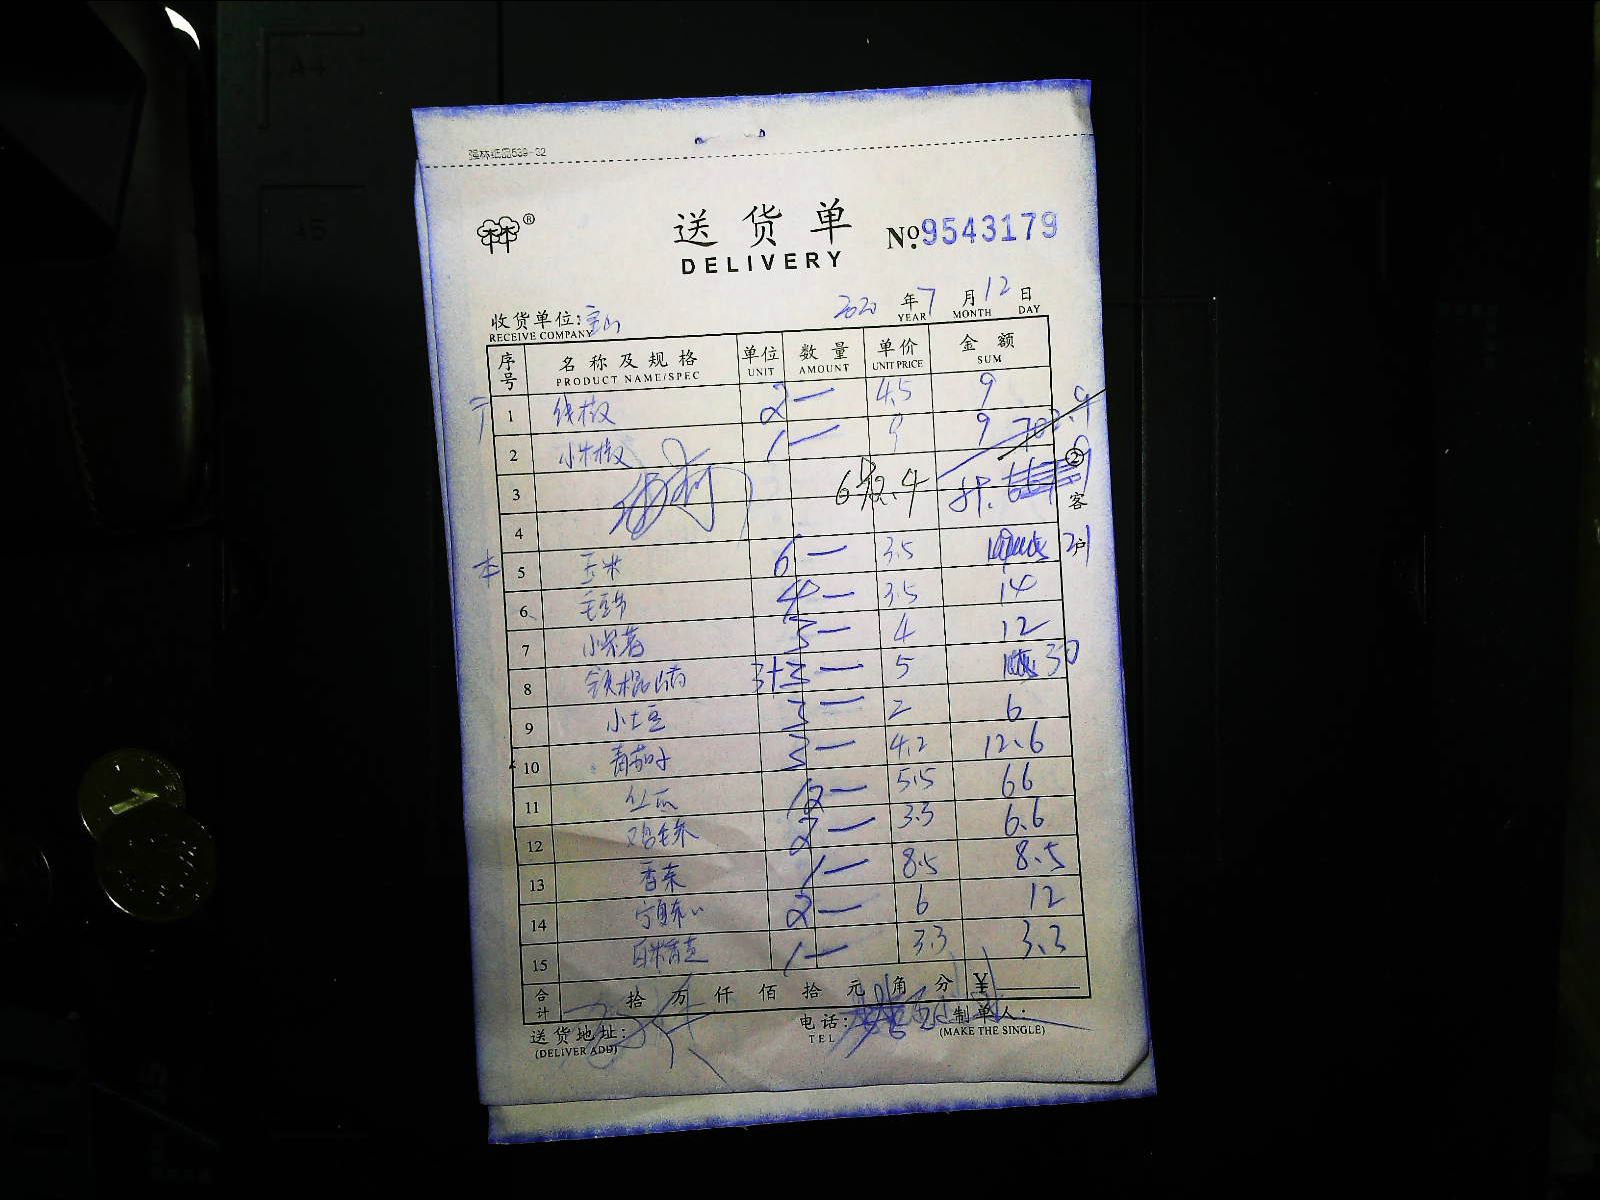 强林纸品539-32
送货单 No.9543179
DELIVERY
2020 年 7 月 12 日
YEAR MONTH DAY
收货单位: 宝山
RECEIVE COMPANY
序号 名称及规格 单位 数量 单价 金额
PRODUCT NAME/SPEC UNIT AMOUNT UNIT PRICE SUM
1 线椒 2 — 4.5 9
2 小米椒 1 — 9 9
3
4
② 客户
本 5 玉米 6 — 3.5 21
6 毛豆节 4 — 3.5 14
7 小紫薯 3 — 4 12
8 铁棍山药 3+3 — 5 30
9 小土豆 3 — 2 6
10 青茄子 3 — 4.2 12.6
11 丝瓜 12 — 5.5 66
12 鸡毛菜 2 — 3.3 6.6
13 香菜 1 — 8.5 8.5
14 2 — 6 12
15 1 — 3.3 3.3
合计 拾 万 仟 佰 拾 元 角 分 ¥
送货地址: 电话: 制单人:
(DELIVER ADD) TEL (MAKE THE SINGLE)